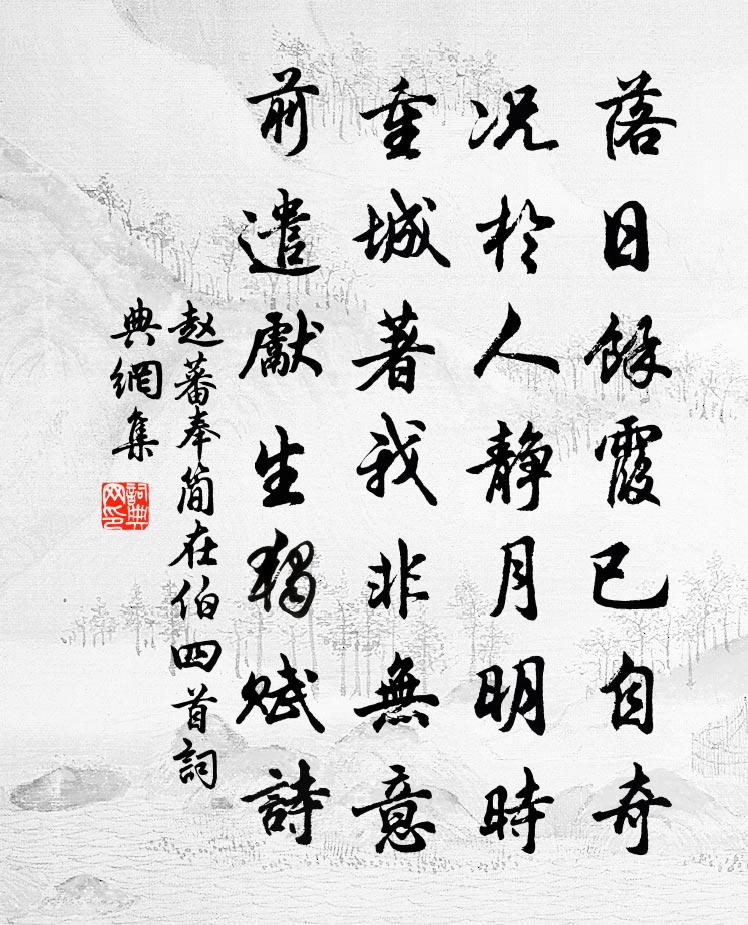 落日餘霞已自奇
况於人静月明時
重城著我非無意
前遣獻生獨賦詩
赵蕃奉简在伯四首詞
典網集
詞典
网印